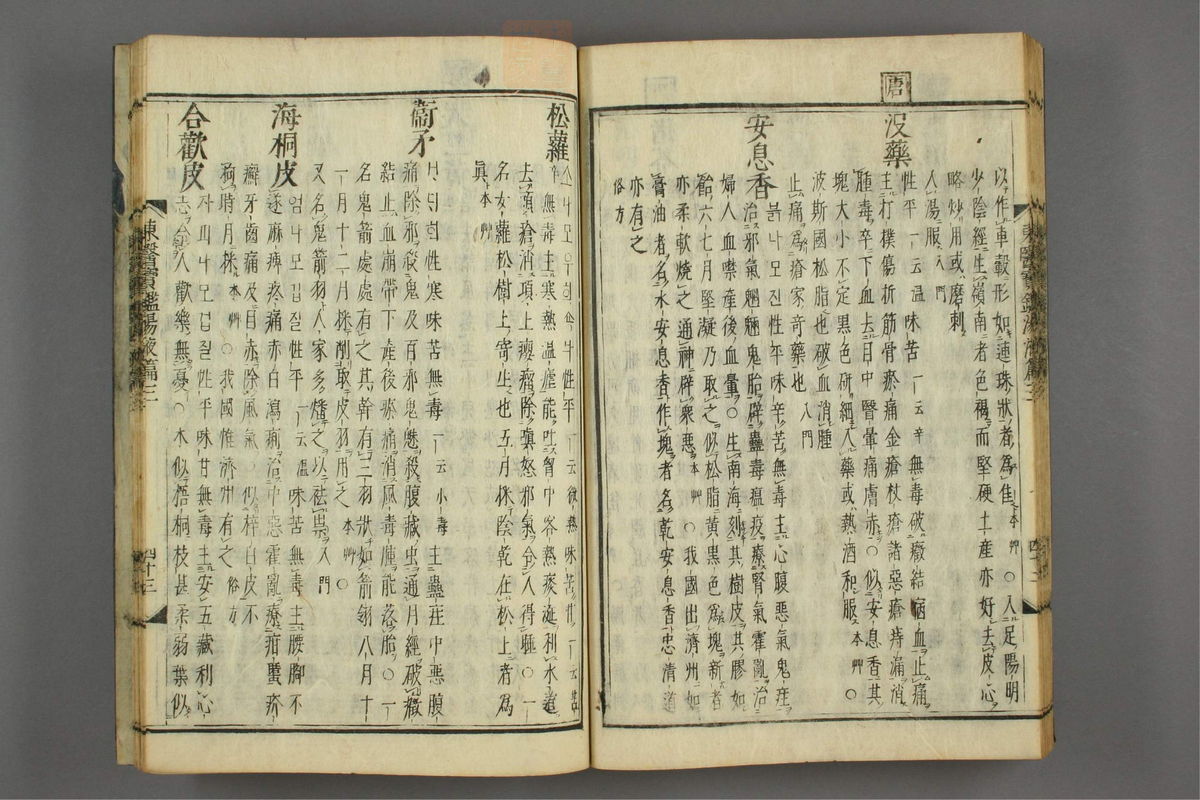 以作車轂形如連珠狀者爲佳本艸○入足陽明
少陰經生嶺南者色褐而堅硬土産亦好去皮心
略炒用或磨刺
人湯服入門
唐
沒藥
性平一云温味苦一云辛無毒破癥結宿血止痛
主打撲傷折筋骨瘀痛金瘡杖瘡諸惡瘡痔漏消
腫毒卒下血去目中瞖暈痛膚赤○似安息香其
塊大小不定黑色研細入藥或熱酒和服本艸○
波斯國松脂也破血消腫
止痛爲瘡家奇藥也入門
安息香
븕나모진性平味辛苦無毒主心腹惡氣鬼疰
治邪氣魍魎鬼胎辟蠱毒瘟疫療腎氣霍亂治
婦人血噤産後血暈○生南海刻其樹皮其膠如
飴六七月堅凝乃取之似松脂黃黑色爲塊新者
亦柔軟燒之通神辟衆惡本艸○我國出濟州如
膏油者名水安息香作塊者名乾安息香忠清道
亦有之
俗方
東醫寶鑑湯液篇三
松蘿
無毒主寒熱温瘧能吐胷中客熱痰涎利水道
去頭瘡消項上瘻瘤除嗔怒邪氣令人得睡○一
名女蘿松樹上寄生也五月採陰乾在松上者爲
眞本艸
衞矛
性寒味苦無毒一云小毒主蠱疰中惡腹
痛除邪殺鬼及百邪鬼魅殺腹藏虫通月經破癥
結止血崩帶下産後瘀痛消風毒腫能落胎○一
名鬼箭處處有之其幹有三羽狀如箭翎八月十
一月十二月採削取皮羽用之本艸○
又名鬼箭羽人家多燔之以祛祟入門
海桐皮
엄나모겁질性平一云温味苦無毒主腰脚不
遂麻痺疼痛赤白瀉痢治中惡霍亂療疳䘌疥
癬牙齒痛及目赤除風氣○似梓白皮不
拘時月採本艸○我國惟濟州有之俗方
合歡皮
자괴나모겁질性平味甘無毒主安五藏利心
志令人歡樂無憂○木似梧桐枝甚柔弱葉似
東醫寶鑑湯液篇三
四十三